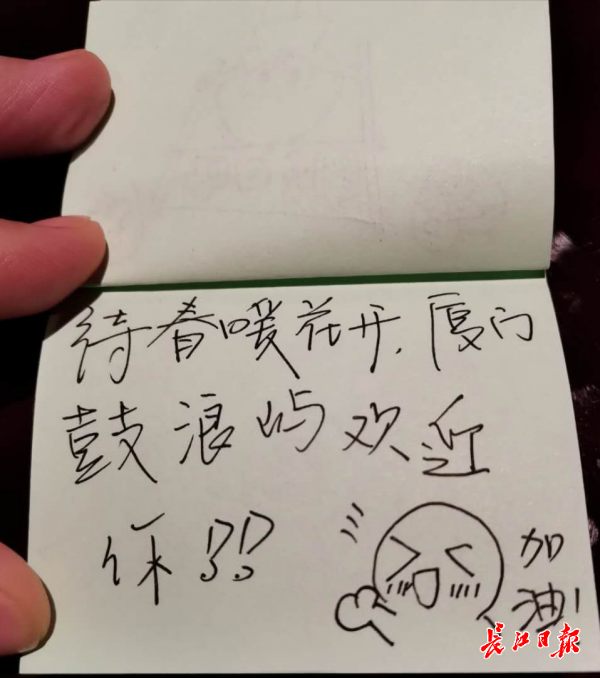 待春暖花开,厦门
鼓浪屿欢迎
你!!
加
油!
长江日报